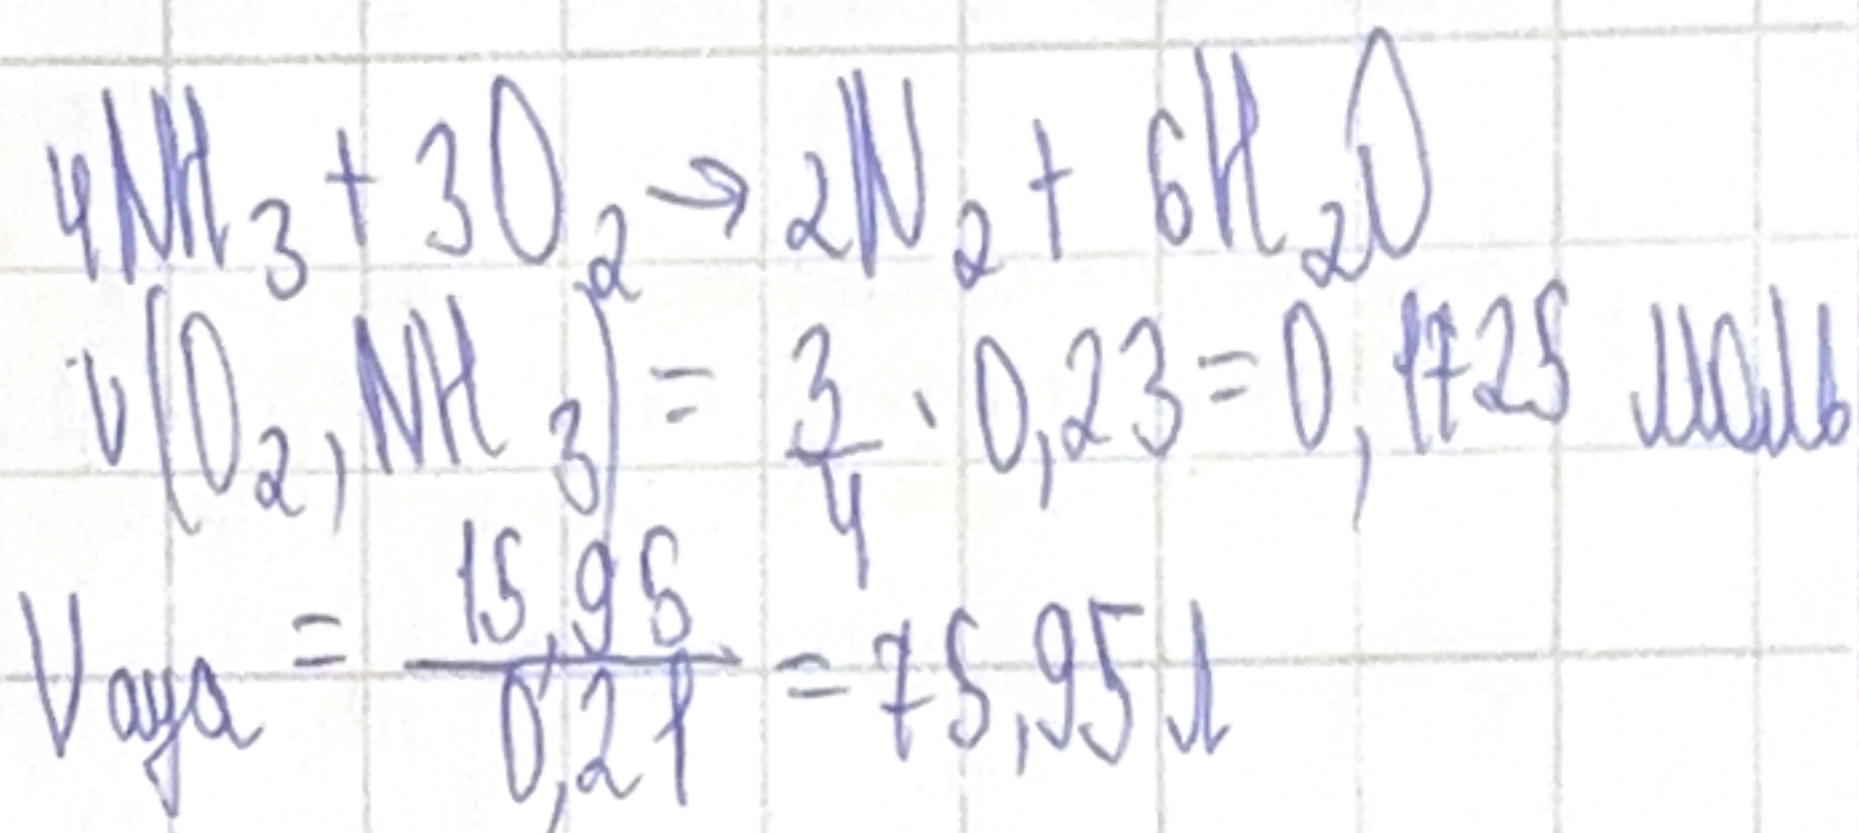 4NH₃ + 3O₂ → 2N₂ + 6H₂O
ν(O₂, NH₃) = 3/4 · 0,23 = 0,1725 моль
Vауа = 15,95/0,21 = 75,95 л